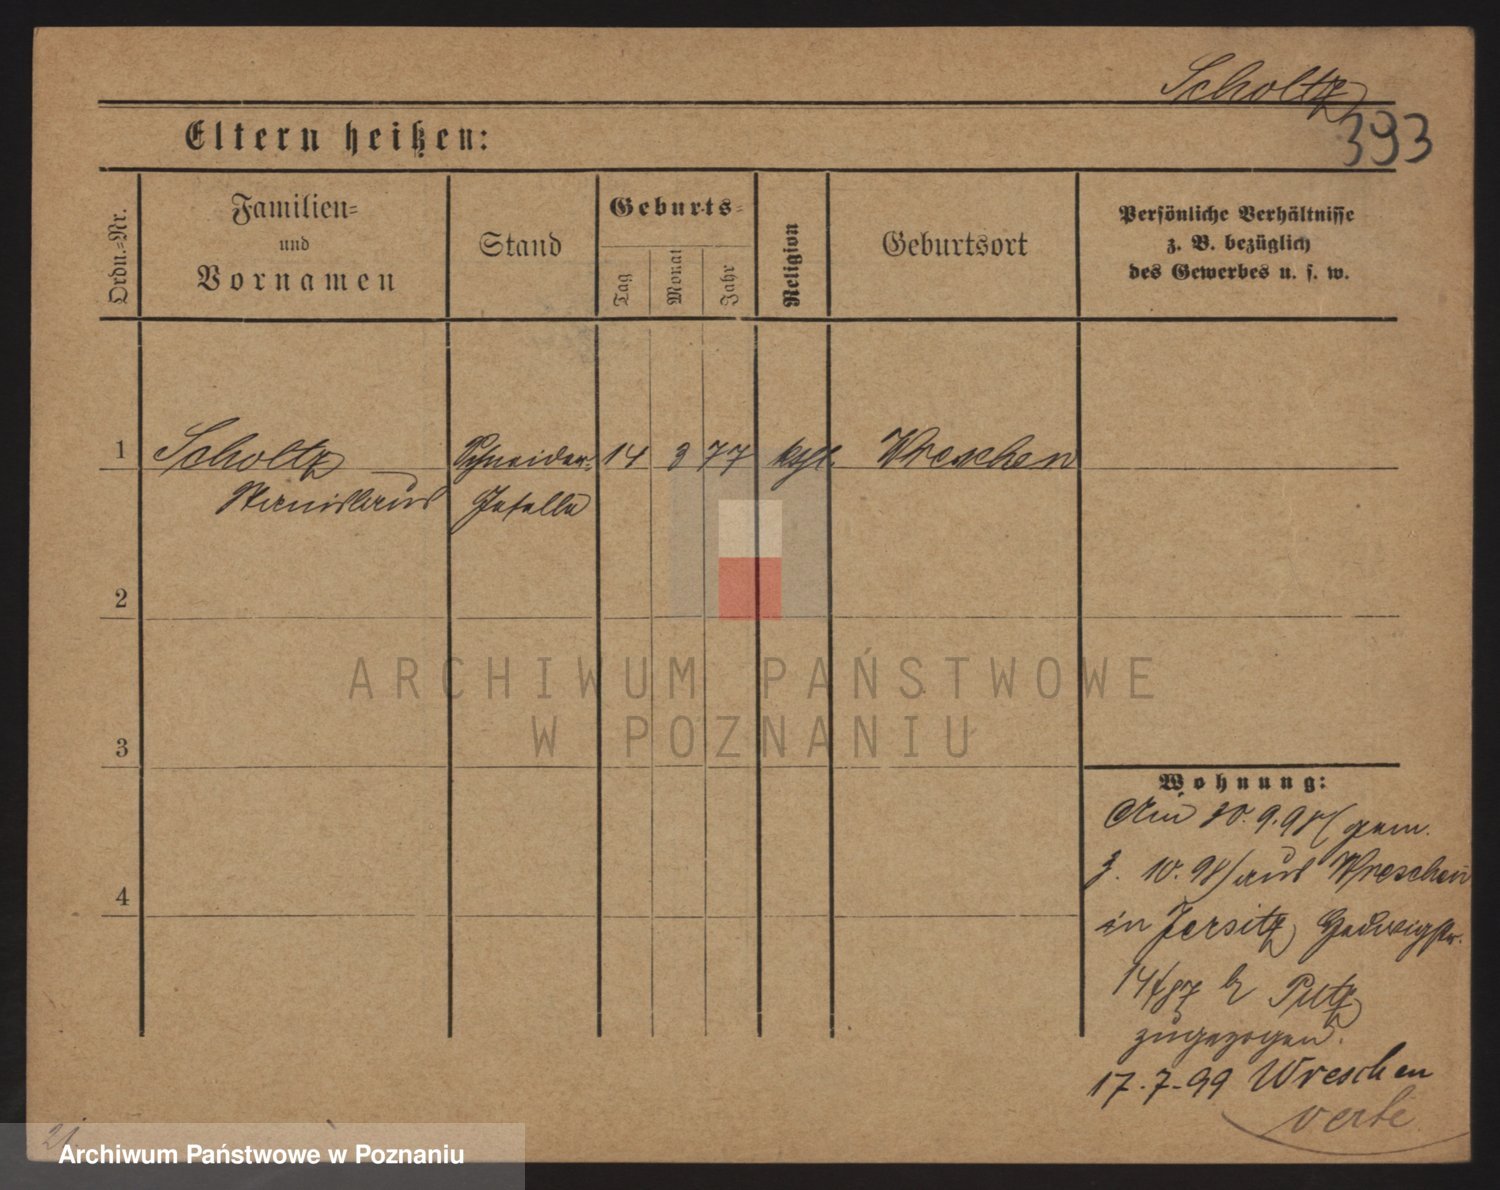 Scholtz
393
Eltern heißen:
Ordn.-Nr.
Familien-
und
Vornamen
Stand
Geburts-
Tag
Monat
Jahr
Religion
Geburtsort
Persönliche Verhältnisse
z. B. bezüglich
des Gewerbes u. s. w.
1 Scholtz Schneider- 14 3 77 kath. Wreschen
Stanislaus Geselle
2
ARCHIWUM PAŃSTWOWE
W POZNANIU
3
Wohnung:
Am 30.9.98/ gem.
3. 10. 98/ aus Wreschen
4
in Jersitz Hedwigstr.
14/87 b Putz
zugezogen.
17.7.99 Wreschen
verte
Archiwum Państwowe w Poznaniu